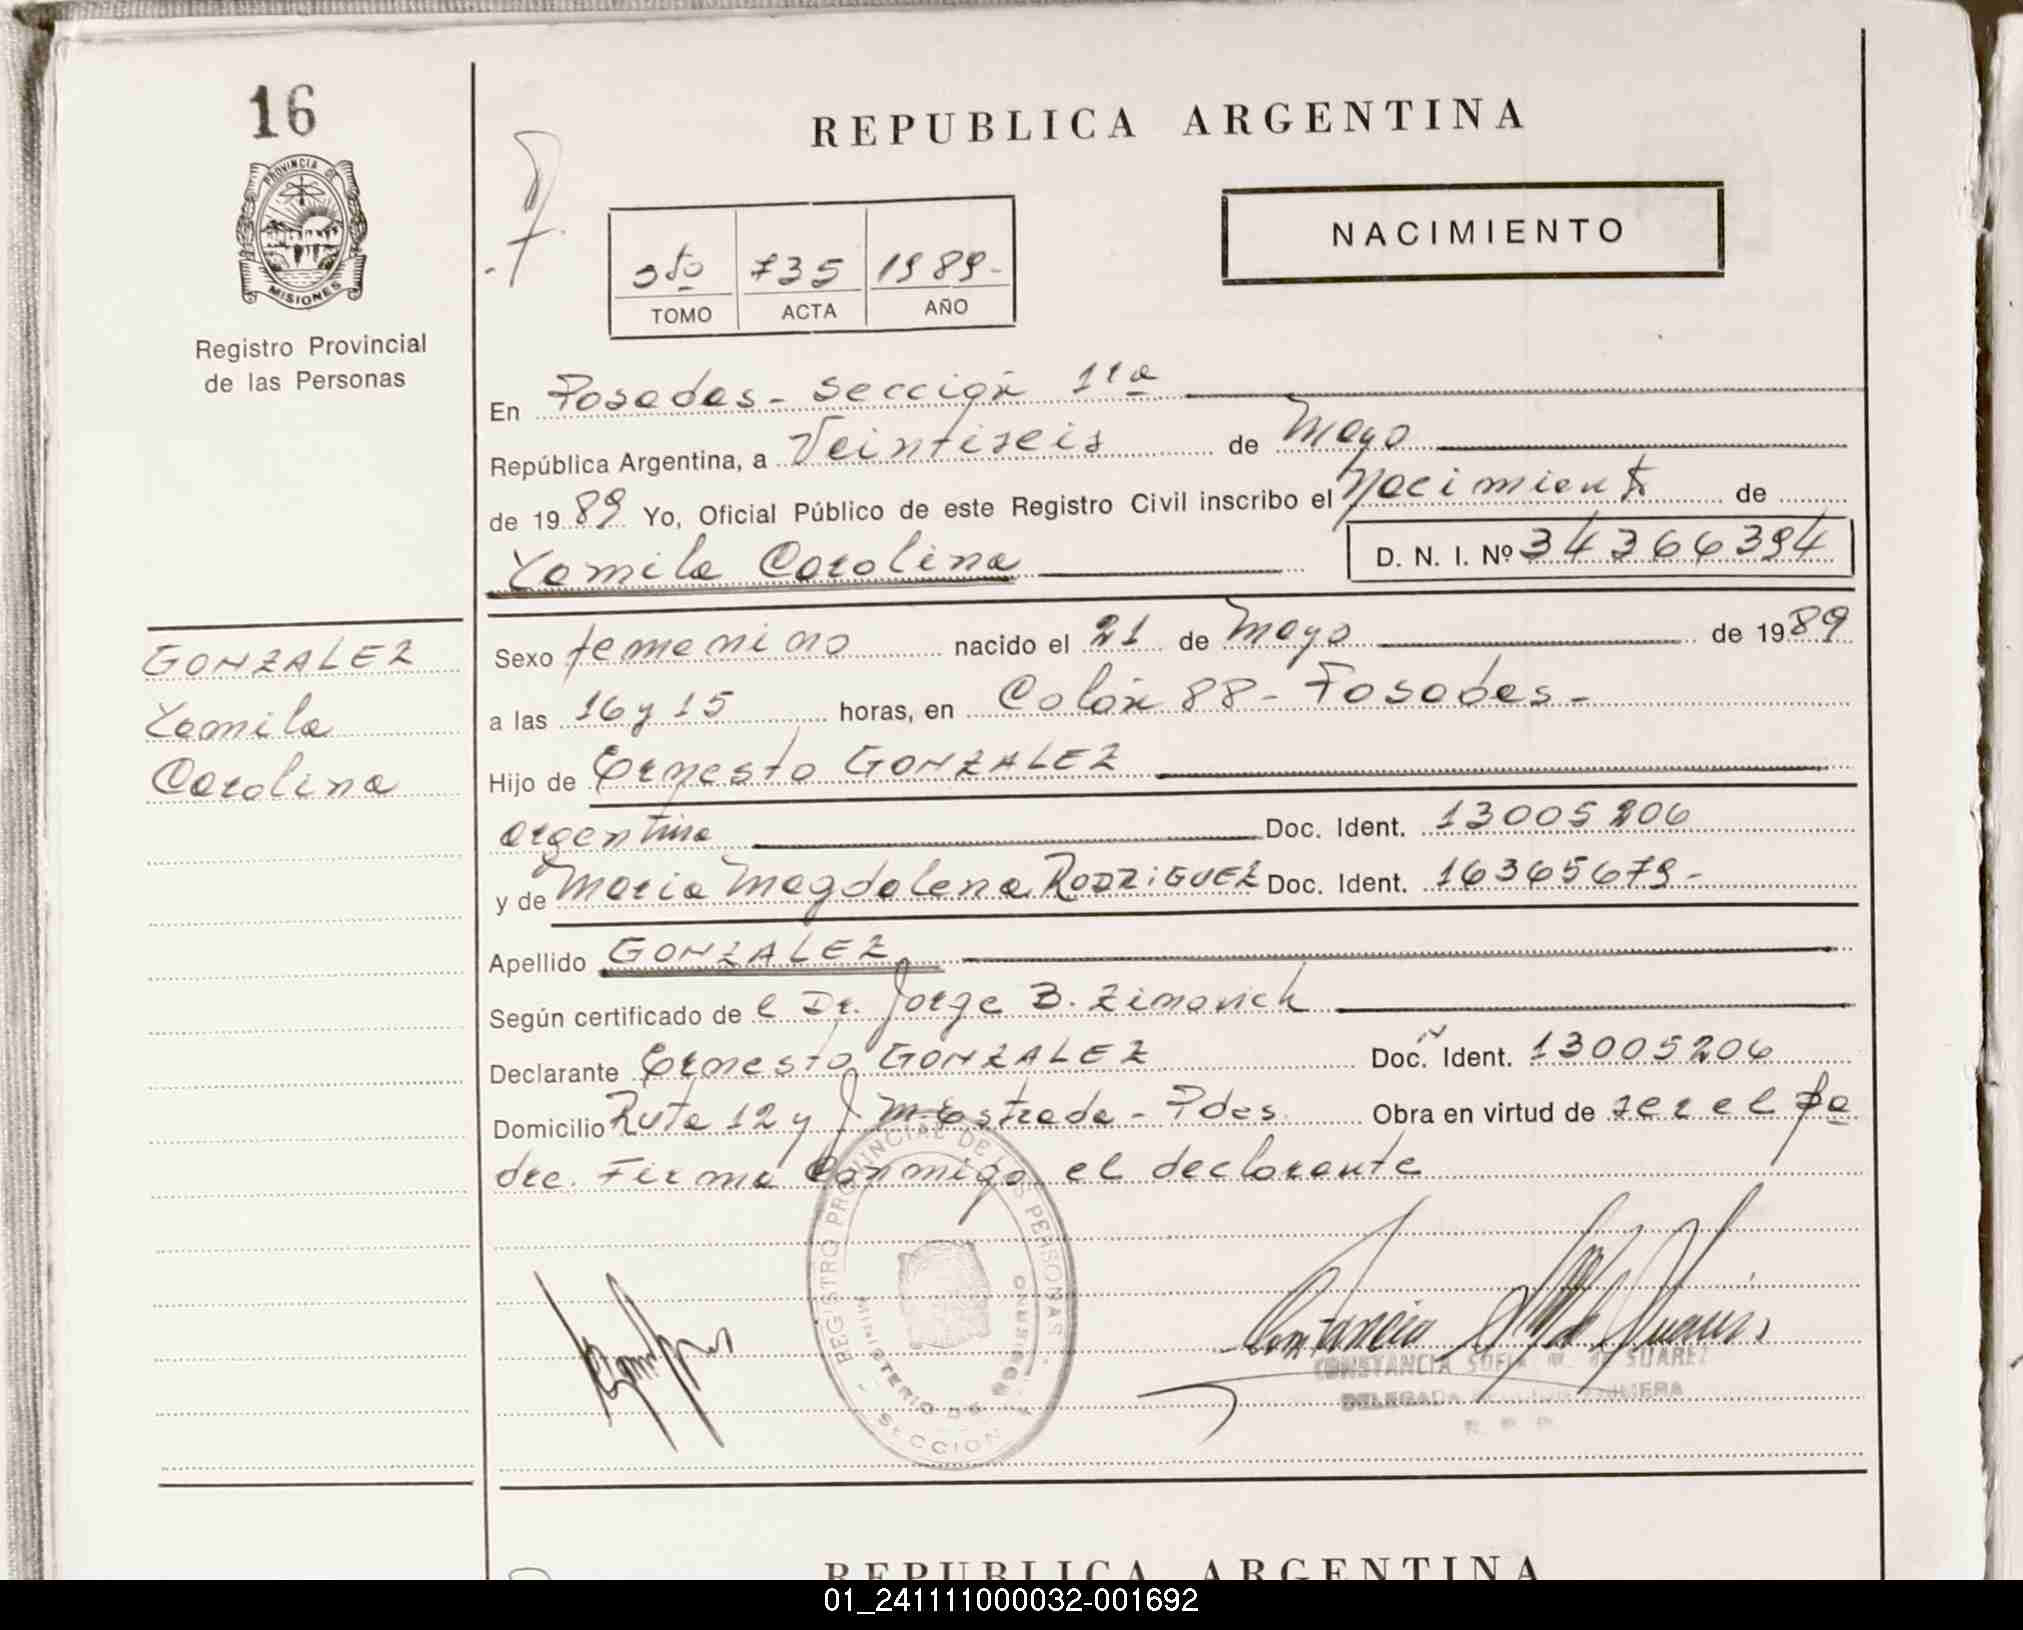 16
REPUBLICA ARGENTINA
PROVINCIA DE
MISIONES
Registro Provincial
de las Personas
NACIMIENTO
5to 735 1989-
TOMO ACTA AÑO
En Posadas - Sección 1ra
República Argentina, a Veintiseis de Mayo
de 1989 Yo, Oficial Público de este Registro Civil inscribo el Nacimiento de
Yamila Carolina D. N. I. Nº 34366394
GONZALEZ
Yamila
Carolina
Sexo femenino nacido el 21 de Mayo de 1989
a las 16 y 15 horas, en Colón 88 - Posadas -
Hijo de Ernesto GONZALEZ
argentino Doc. Ident. 13005206
y de Maria Magdalena RODRIGUEZ Doc. Ident. 16365679-
Apellido GONZALEZ
Según certificado de l Dr. Jorge B. Zimovich
Declarante Ernesto GONZALEZ Doc. Ident. 13005206
Domicilio Ruta 12 y J M Estrada - Pdas Obra en virtud de ser el pa
dre. Firma conmigo el declarante
REGISTRO PROVINCIAL DE LAS PERSONAS
MINISTERIO DE GOBIERNO
SECCION
CONSTANCIA SOFIA M. de SUAREZ
DELEGADA SECCION PRIMERA
R. P. P.
REPUBLICA ARGENTINA
01_241111000032-001692